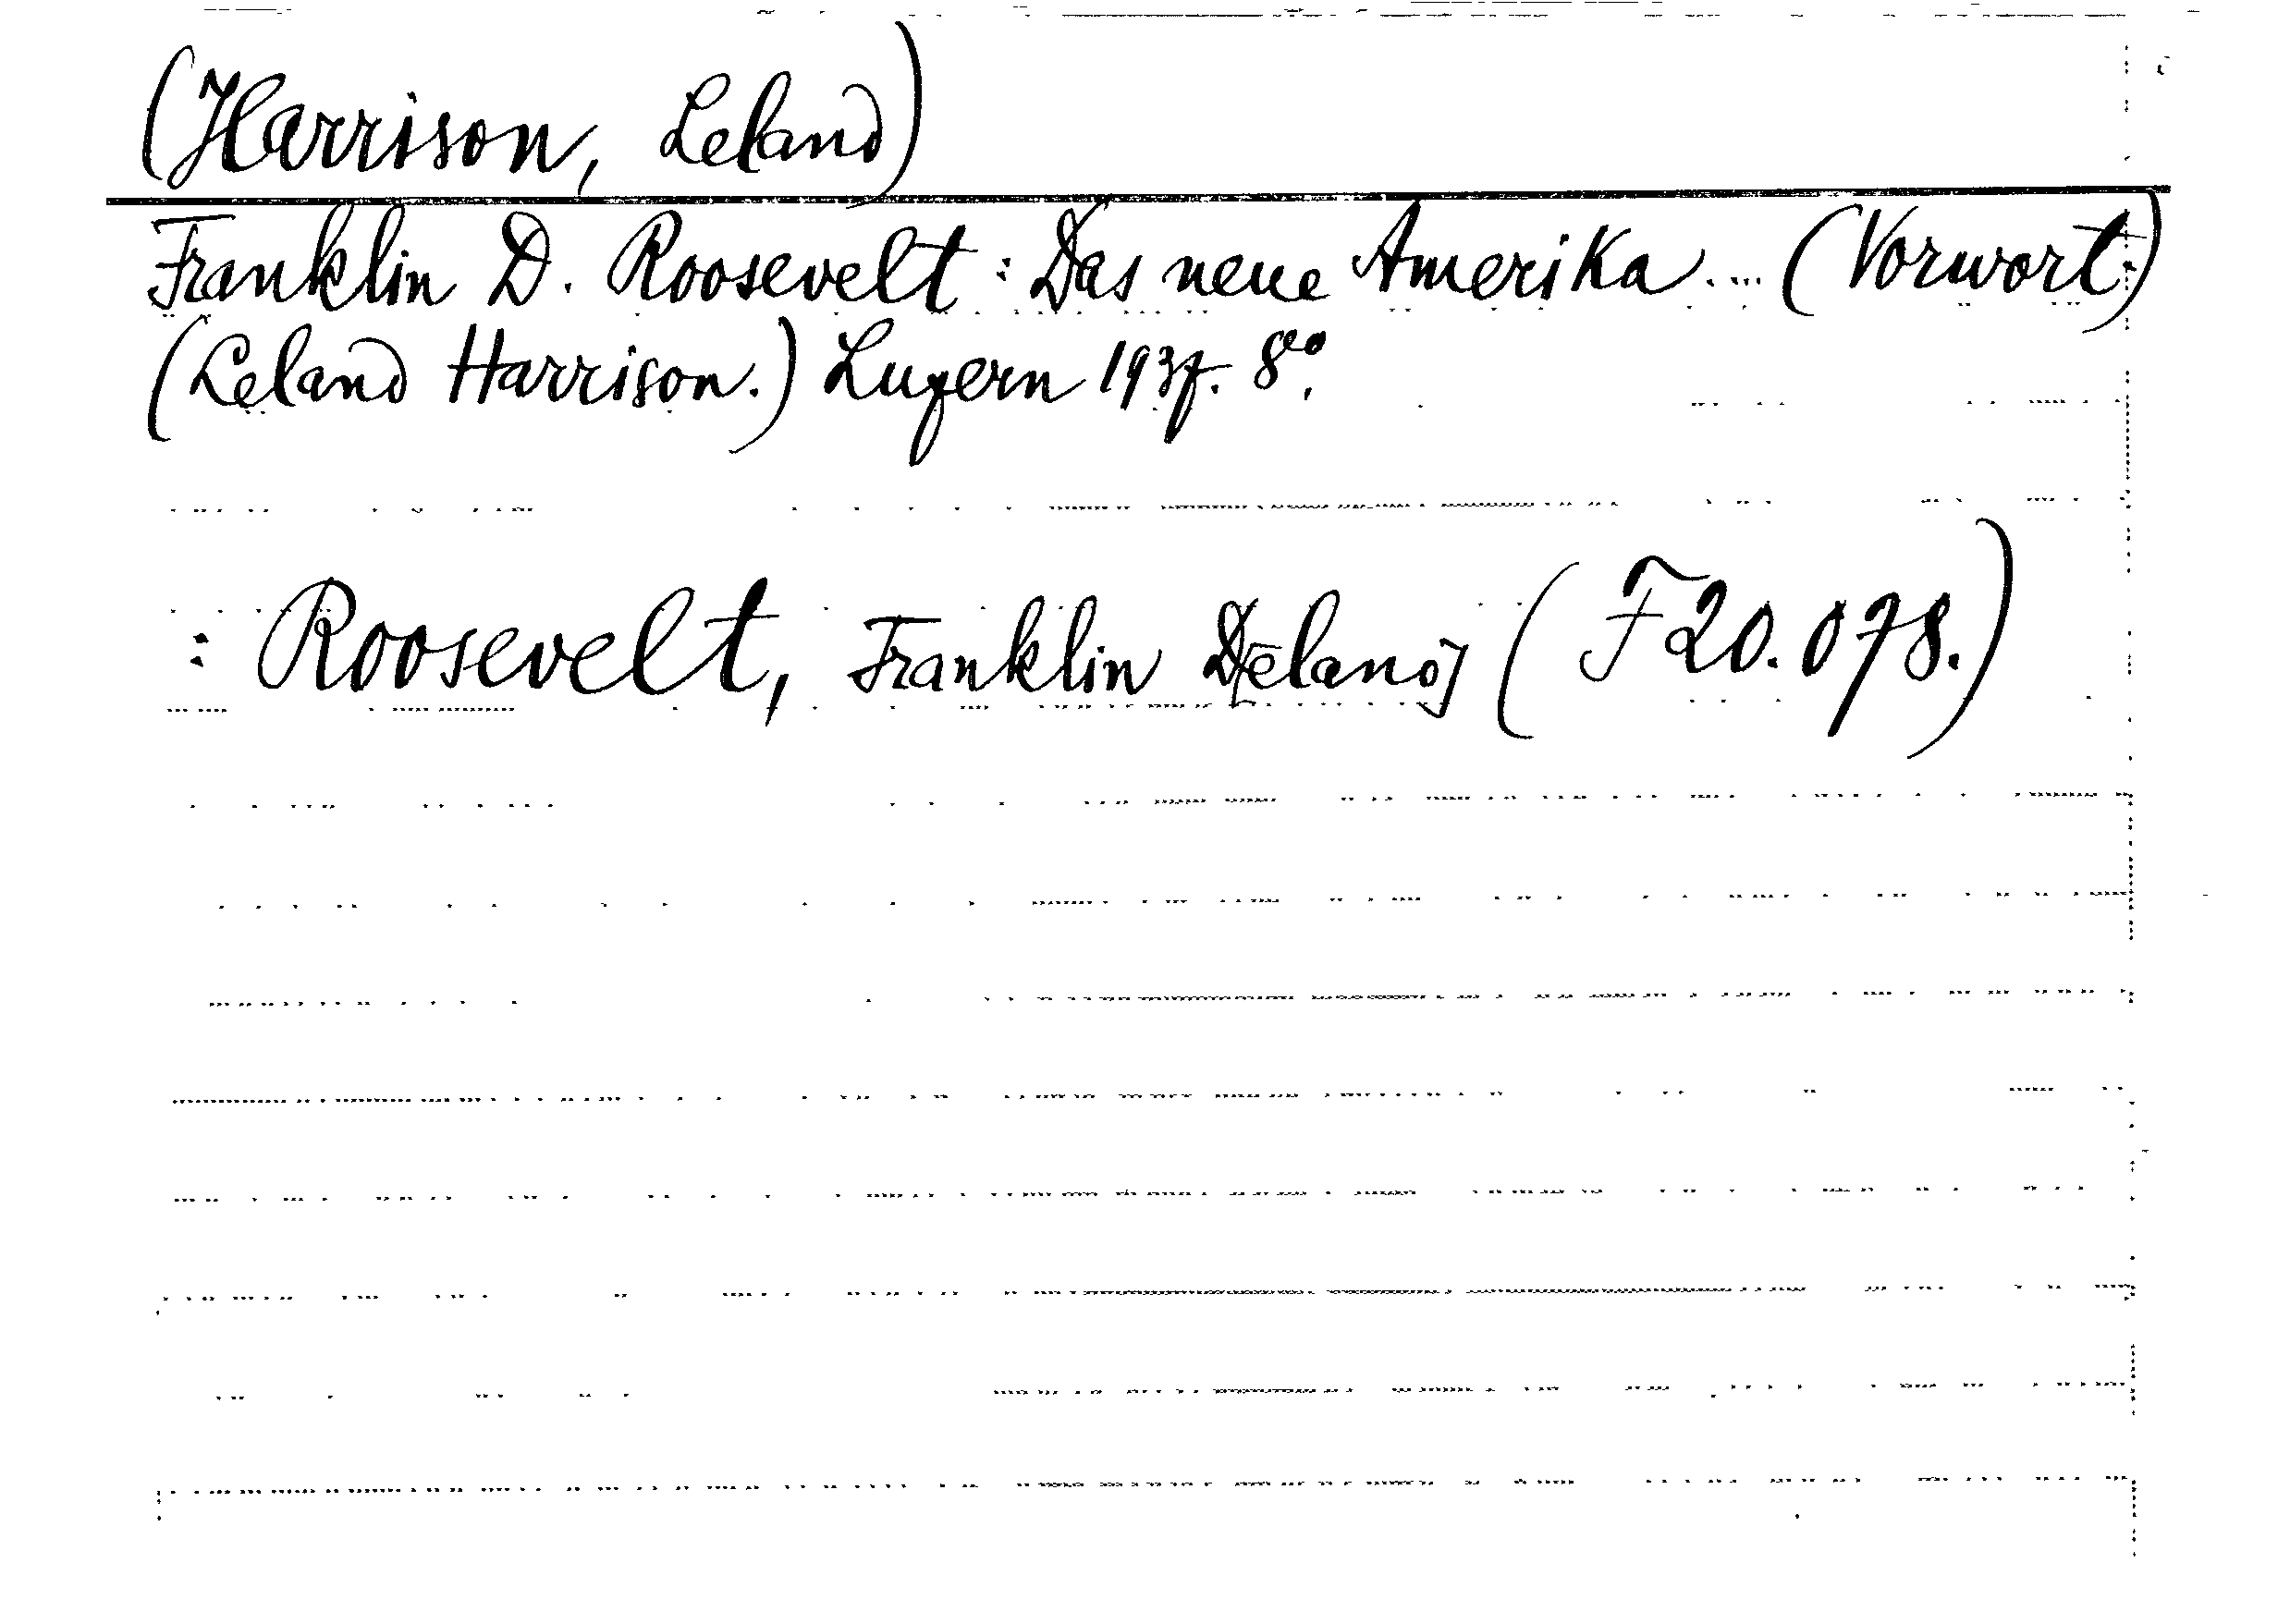 (Harrison, Leland)
Franklin D. Roosevelt: Das neue Amerika.... (Vorwort:)
(Leland Harrison.) Luzern 1937. 8vo.
: Roosevelt, Franklin Delano] (F20.078.)